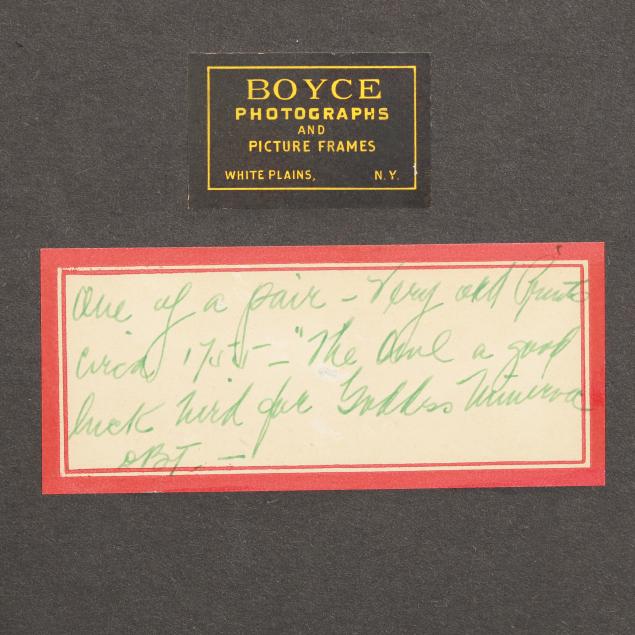 BOYCE
PHOTOGRAPHS
AND
PICTURE FRAMES
WHITE PLAINS, N.Y.
One of a pair – Very old Prints
circa 1755 – "The Owl a good
luck bird for Goddess Minerva